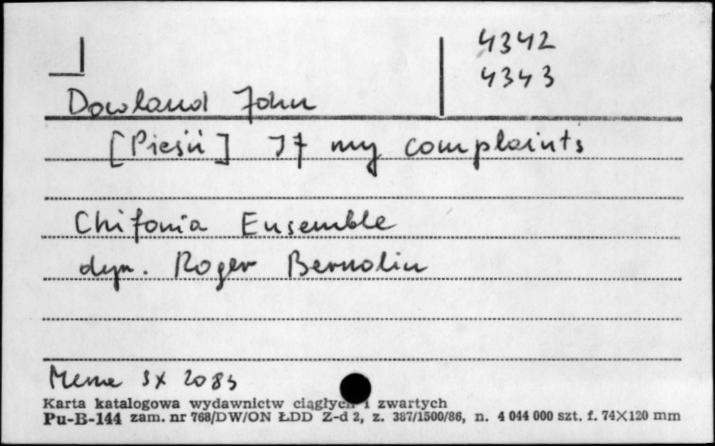 4342
4343
Dowland John
[Pieśń] If my complaints
Chifonia Ensemble
dyr. Roger Bernolin
SX 2083
Karta katalogowa wydawnictw ciągłych i zwartych
Pu-B-144 zam. nr 768/DW/ON ŁDD Z-d 2, z. 387/1500/86, n. 4 044 000 szt. f. 74×120 mm